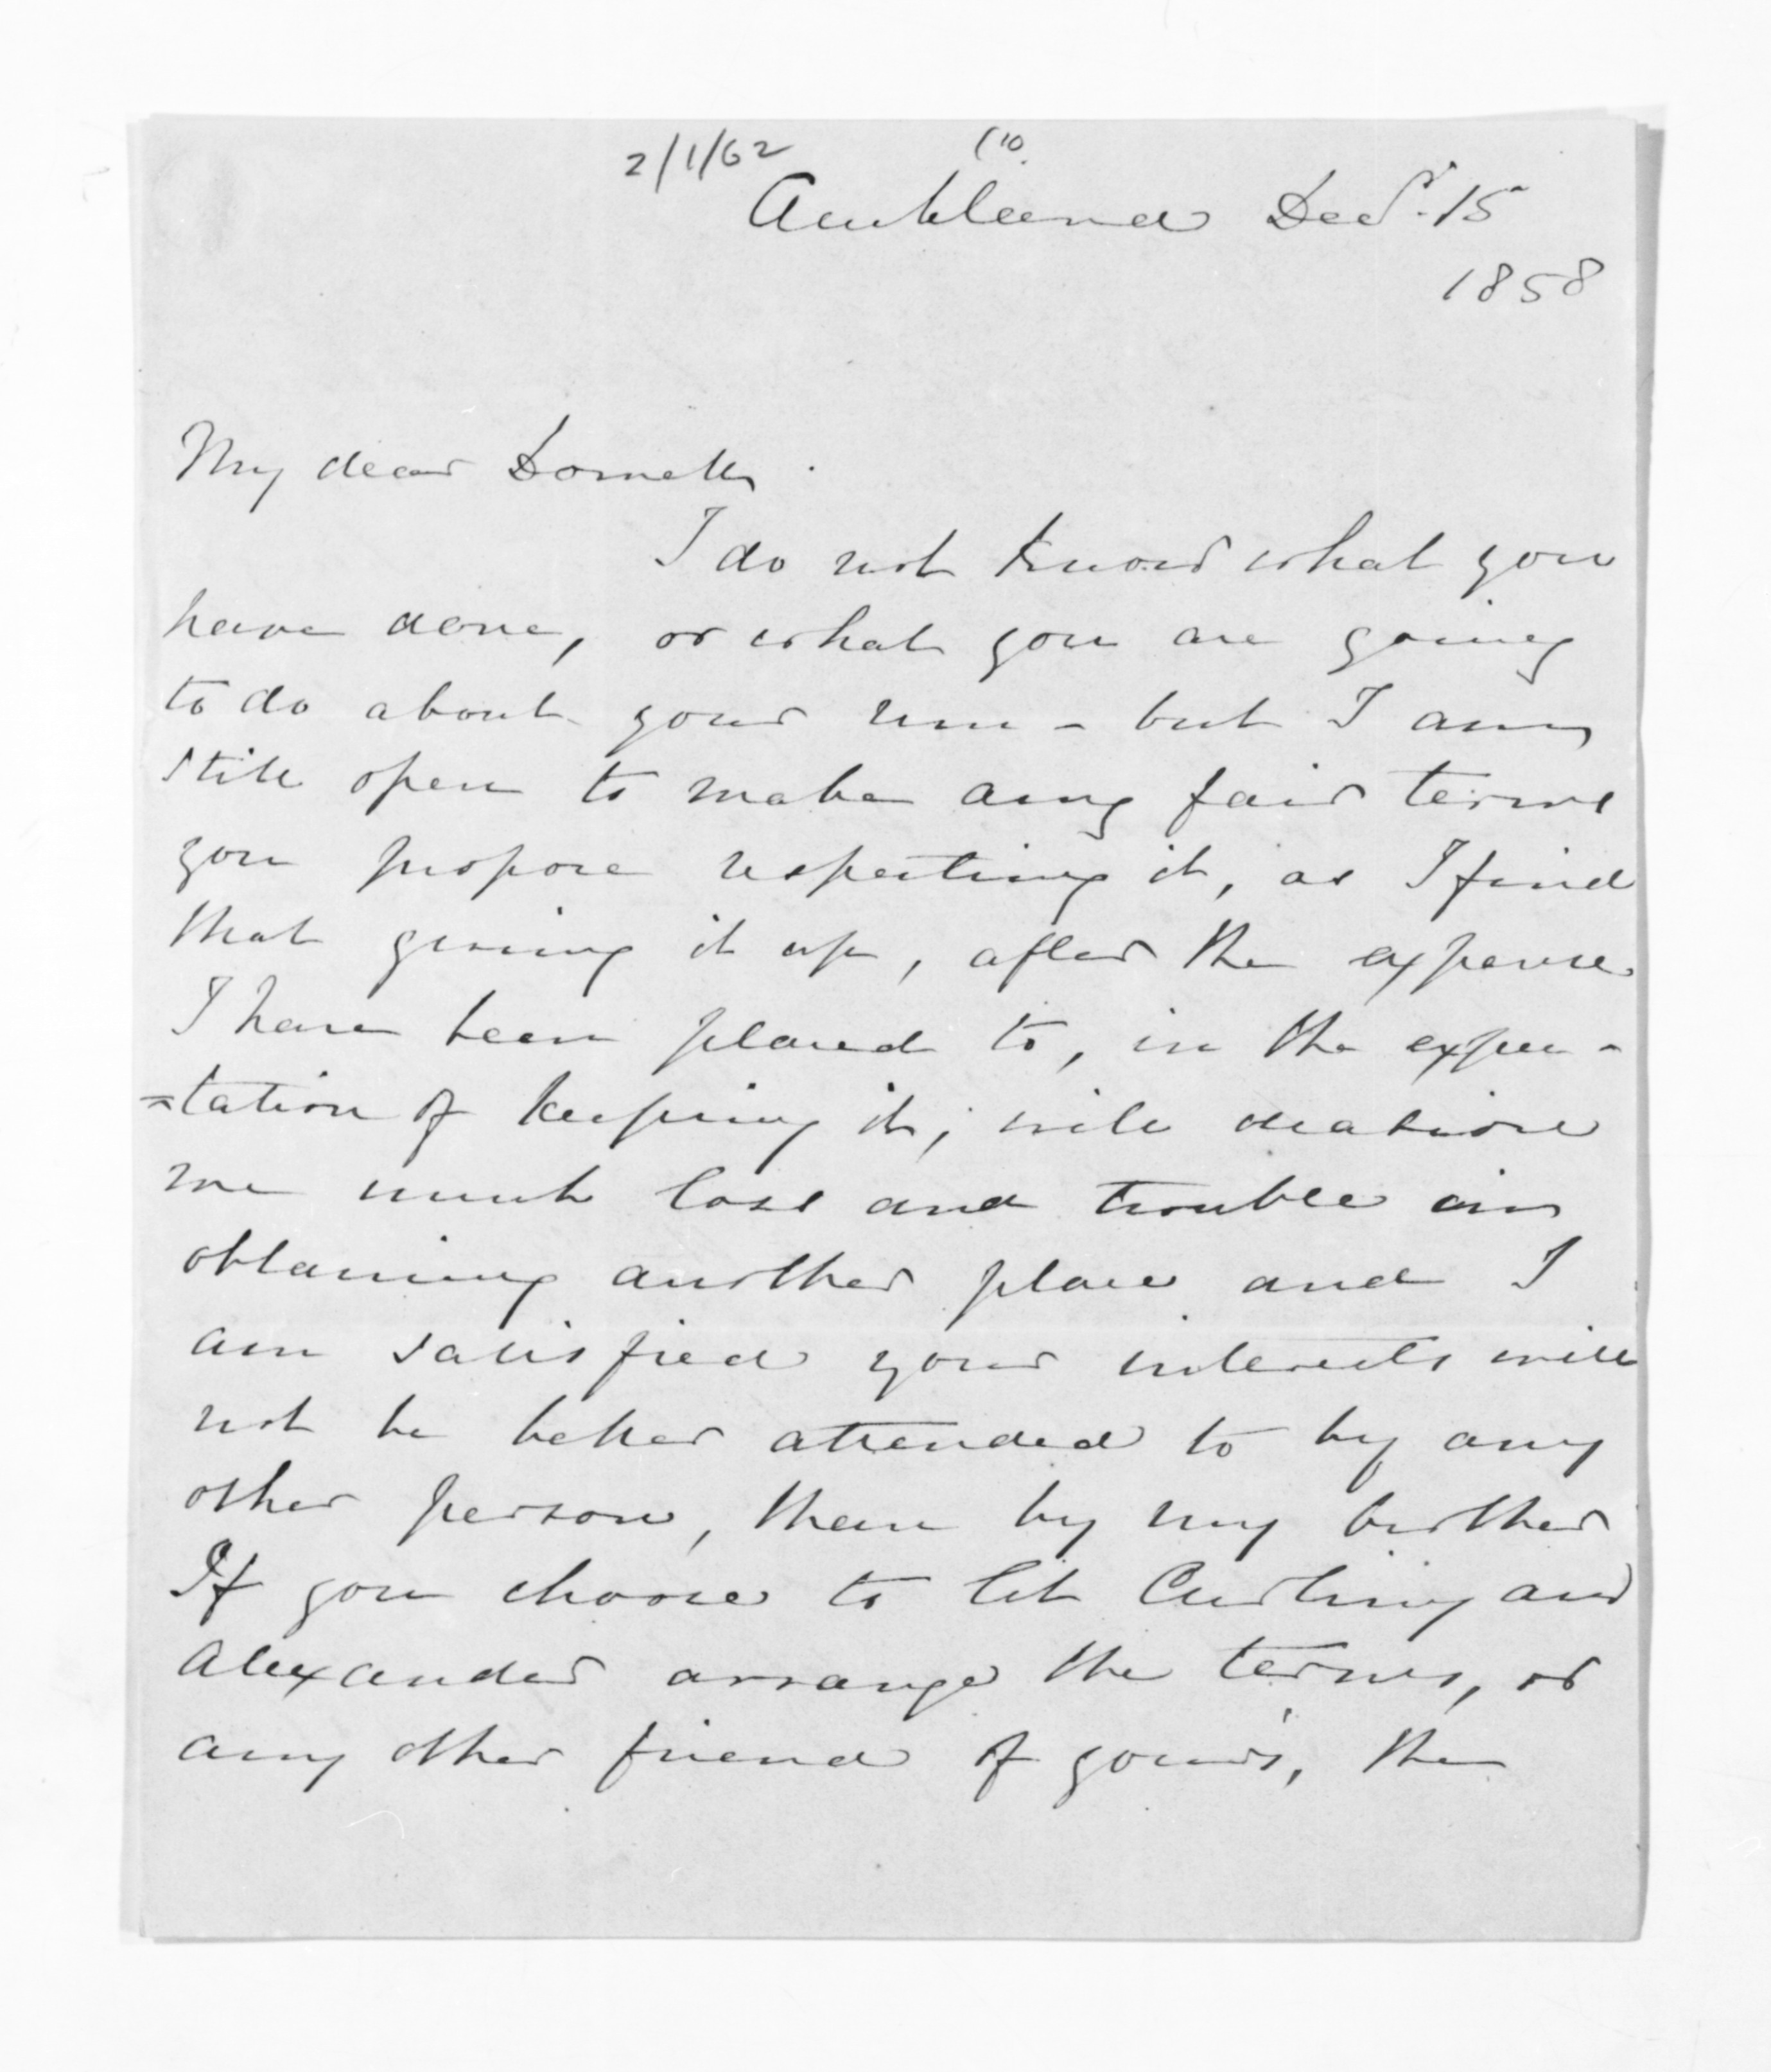 2/1/62 (10.
Auckland Decr. 15
1858
My dear Domett
I do not know what you
have done, or what you are going
to do about your run - but I am
still open to make any fair terms
you propose respecting it, as I find
that giving it up, after the expense
I have been placed to, in the expec-
=tation of keeping it, will occasion
me much loss and trouble in
obtaining another place and I
am satisfied your interests will
not be better attended to by any
other person, than by my brother
If you choose to let Curling and
Alexander arrange the terms, or
any other friend of your's, the